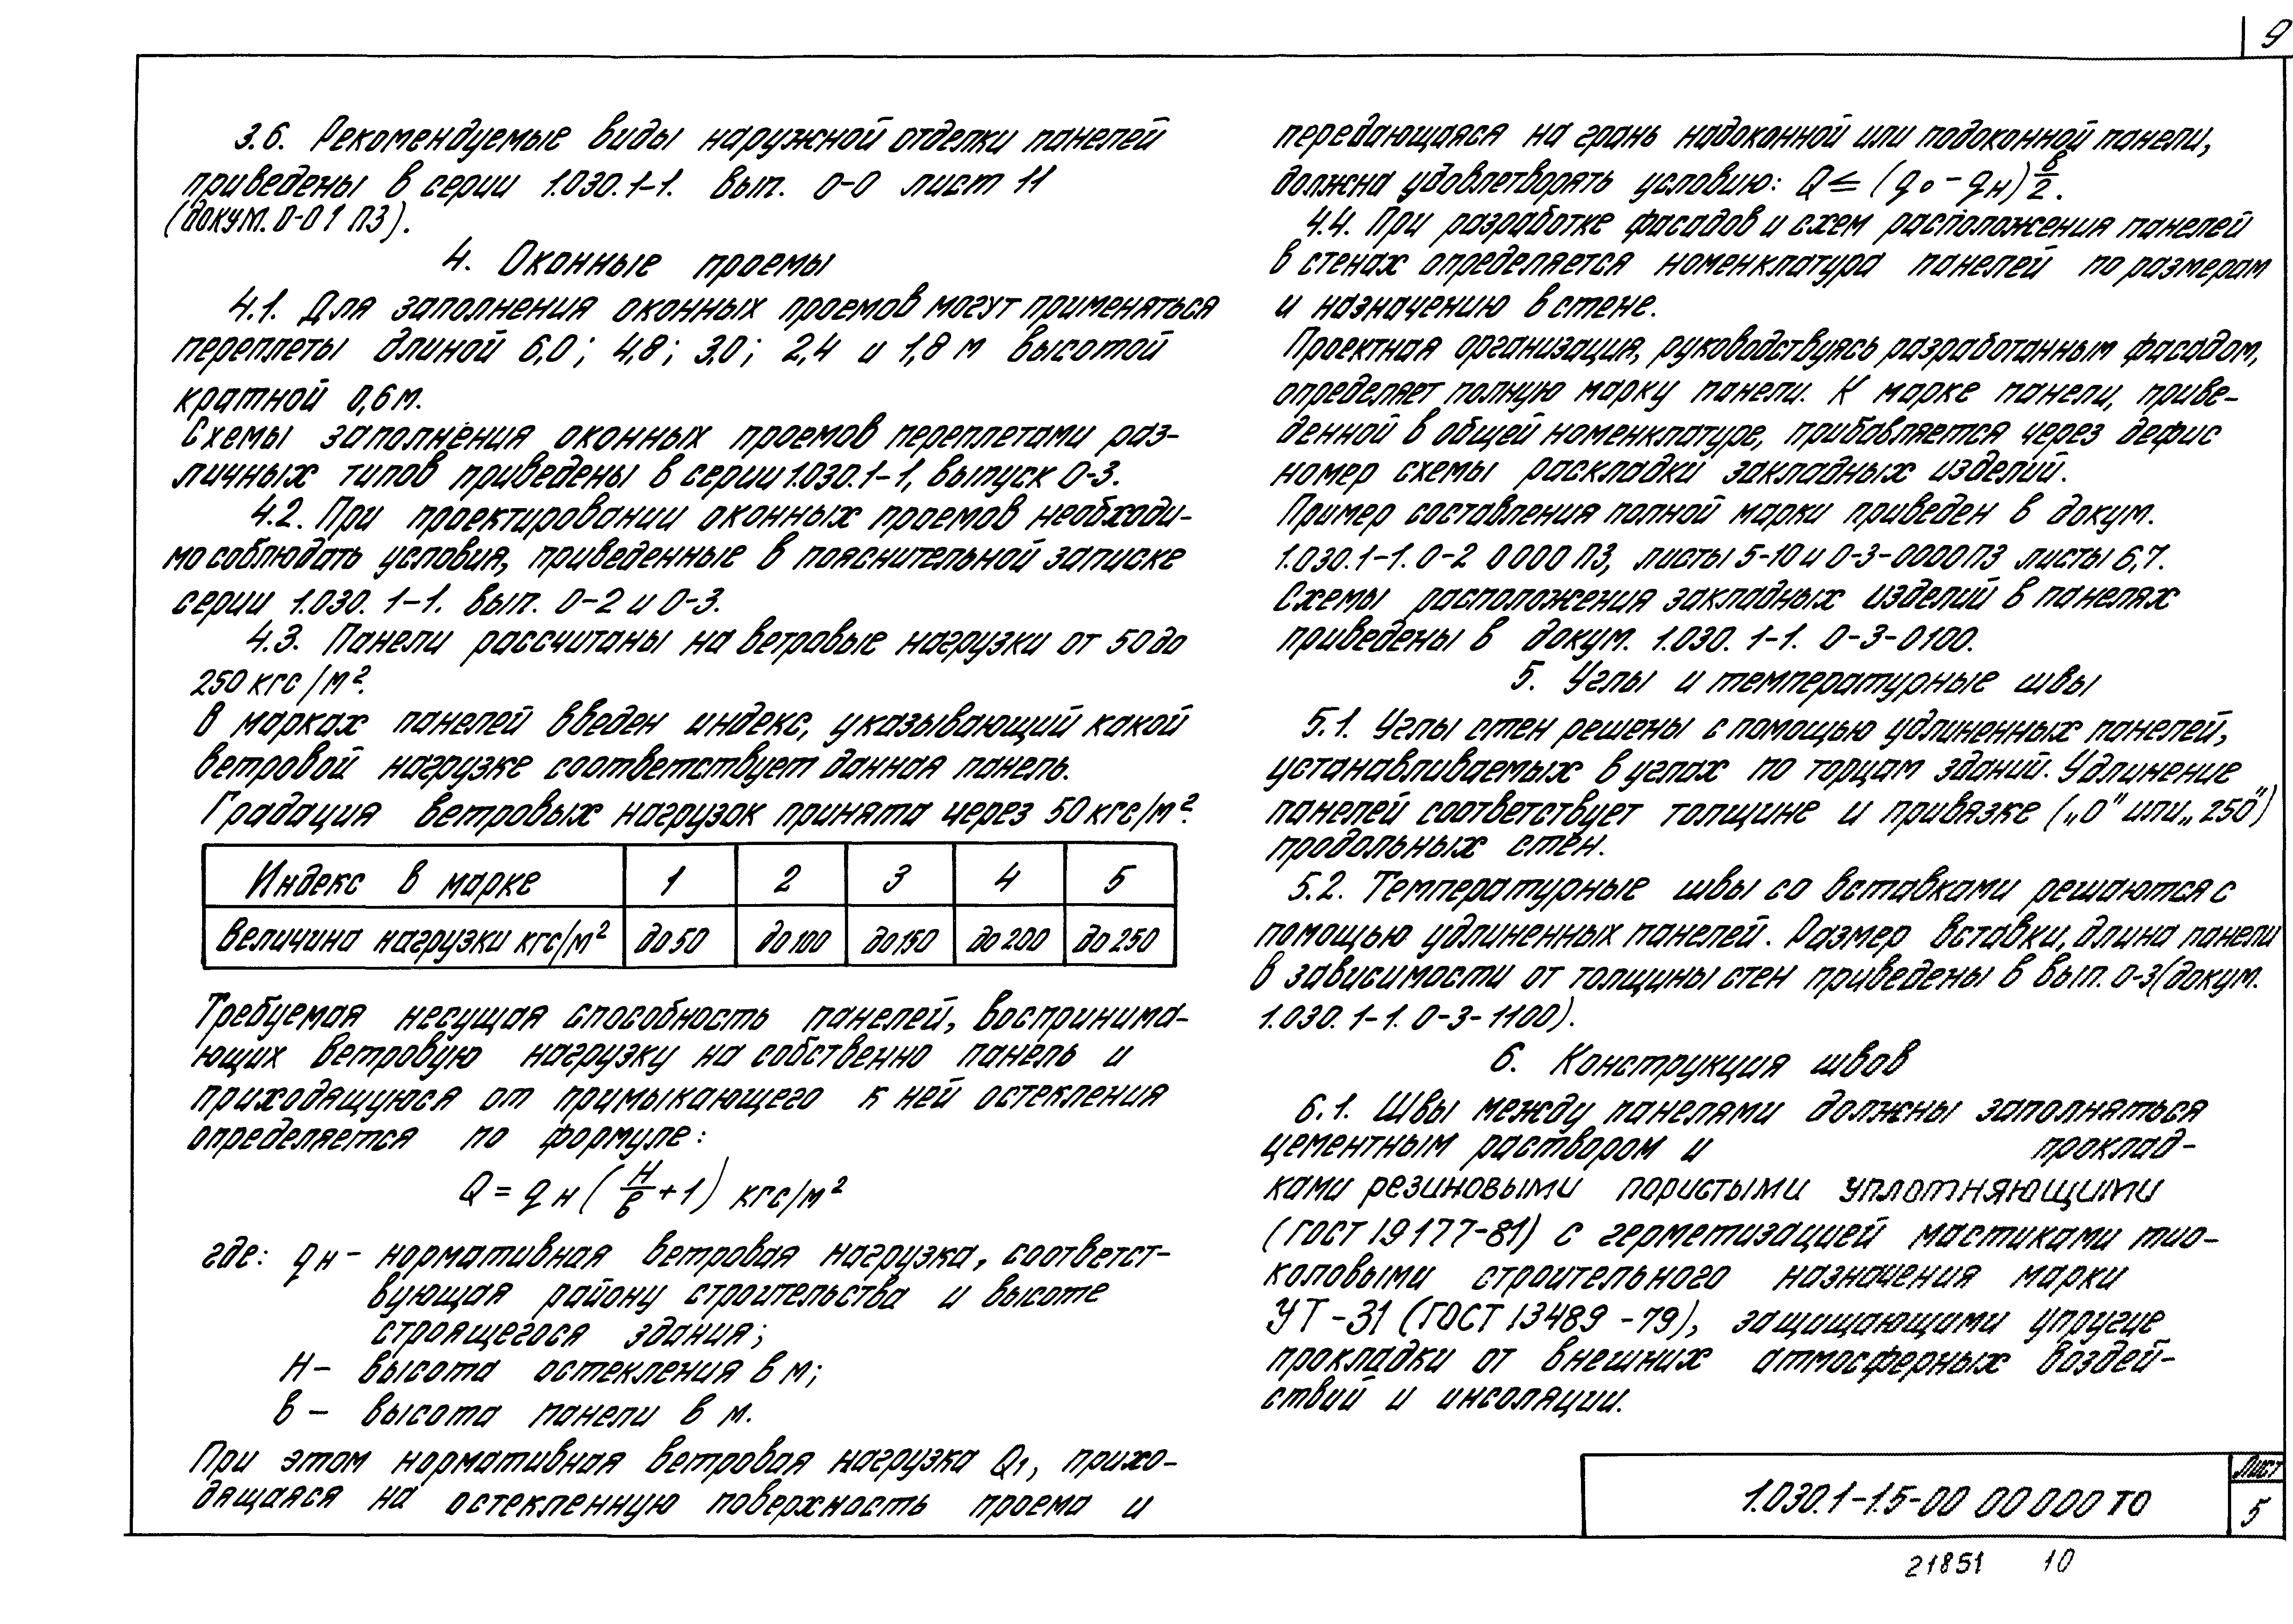 9
3.6. Рекомендуемые виды наружной отделки панелей
приведены в серии 1.030.1-1. вып. 0-0 лист 11
(докум. 0-01 ПЗ).
4. Оконные проемы
4.1. Для заполнения оконных проемов могут применяться
переплеты длиной 6,0; 4,8; 3,0; 2,4 и 1,8 м высотой
кратной 0,6 м.
Схемы заполнения оконных проемов переплетами раз-
личных типов приведены в серии 1.030.1-1, выпуск 0-3.
4.2. При проектировании оконных проемов необходи-
мо соблюдать условия, приведенные в пояснительной записке
серии 1.030. 1-1. вып. 0-2 и 0-3.
4.3. Панели рассчитаны на ветровые нагрузки от 50 до
250 кгс/м².
В марках панелей введен индекс, указывающий какой
ветровой нагрузке соответствует данная панель.
Градация ветровых нагрузок принята через 50 кгс/м².
Индекс в марке 1 2 3 4 5
Величина нагрузки кгс/м² до 50 до 100 до 150 до 200 до 250
Требуемая несущая способность панелей, воспринима-
ющих ветровую нагрузку на собственно панель и
приходящуюся от примыкающего к ней остекления
определяется по формуле:
Q = qн (H/в + 1) кгс/м²
где: qн - нормативная ветровая нагрузка, соответст-
вующая району строительства и высоте
строящегося здания;
H - высота остекления в м;
в - высота панели в м.
При этом нормативная ветровая нагрузка Q1, прихо-
дящаяся на остекленную поверхность проема и
передающаяся на грань надоконной или подоконной панели,
должна удовлетворять условию: Q ≤ (q₀ - qн) в/2.
4.4. При разработке фасадов и схем расположения панелей
в стенах определяется номенклатура панелей по размерам
и назначению в стене.
Проектная организация, руководствуясь разработанным фасадом,
определяет полную марку панели. К марке панели, приве-
денной в общей номенклатуре, прибавляется через дефис
номер схемы раскладки закладных изделий.
Пример составления полной марки приведен в докум.
1.030.1-1. 0-2 0000 ПЗ, листы 5-10 и 0-3-0000ПЗ листы 6,7.
Схемы расположения закладных изделий в панелях
приведены в докум. 1.030. 1-1. 0-3-0100.
5. Углы и температурные швы
5.1. Углы стен решены с помощью удлиненных панелей,
устанавливаемых в углах по торцам зданий. Удлинение
панелей соответствует толщине и привязке („0" или „250")
продольных стен.
5.2. Температурные швы со вставками решаются с
помощью удлиненных панелей. Размер вставки, длина панели
в зависимости от толщины стен приведены в вып. 0-3 (докум.
1.030. 1-1. 0-3-1100).
6. Конструкция швов
6.1. Швы между панелями должны заполняться
цементным раствором и проклад-
ками резиновыми пористыми уплотняющими
(ГОСТ 19177-81) с герметизацией мастиками тио-
коловыми строительного назначения марки
УТ-31 (ГОСТ 13489-79), защищающими упругие
прокладки от внешних атмосферных воздей-
ствий и инсоляции.
1.030.1-1.5-00 00 000 ТО
Лист
5
21851 10